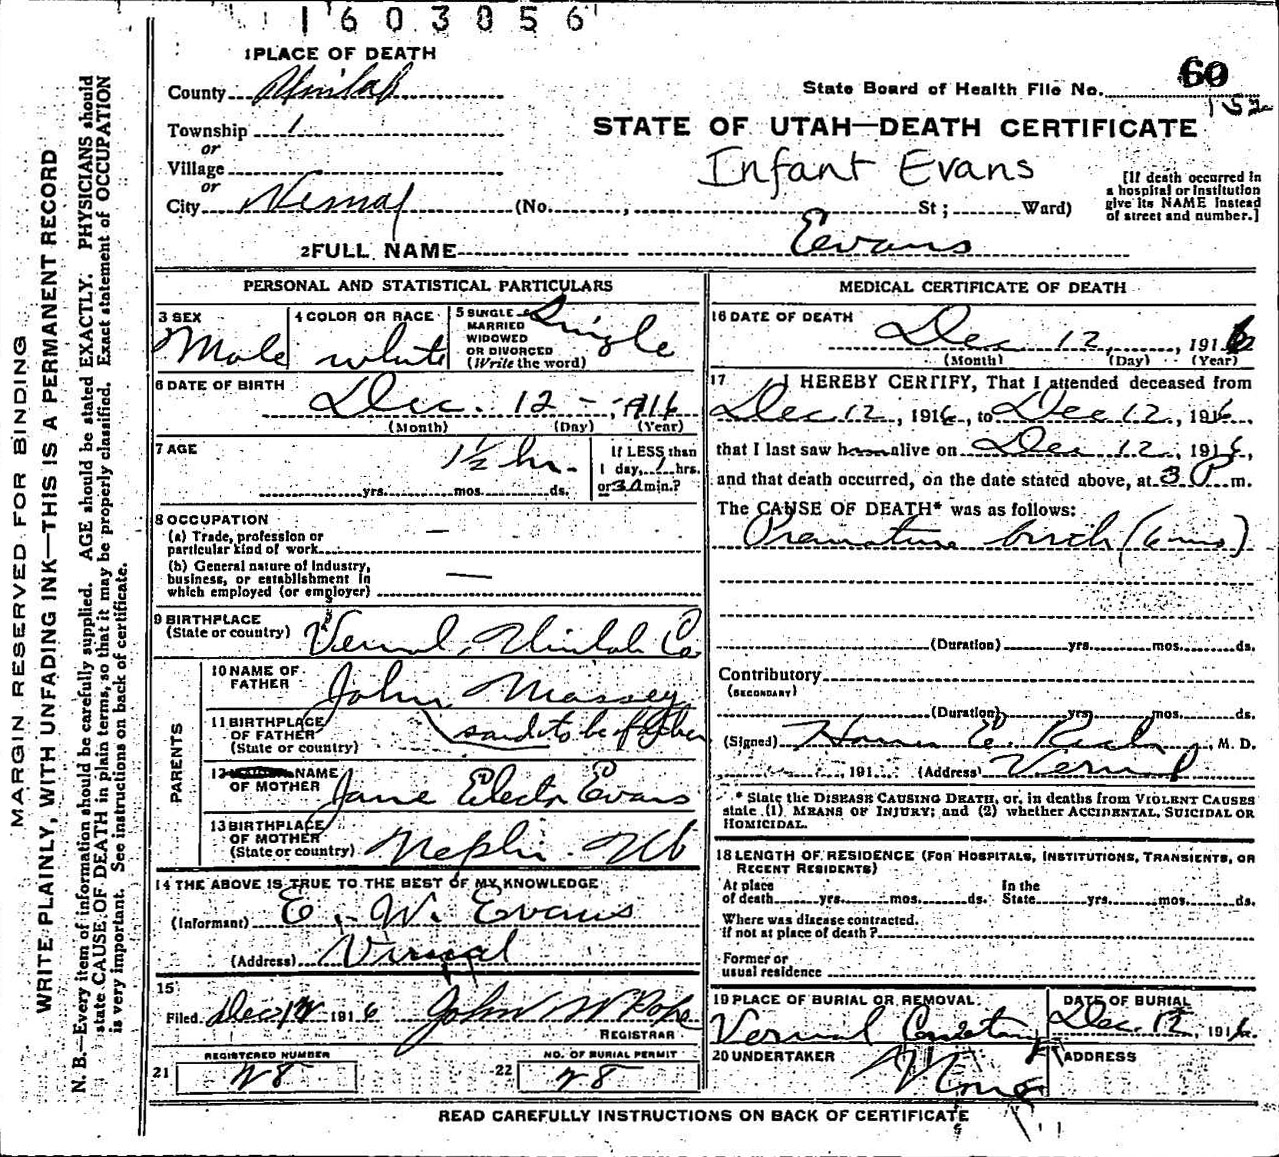 1603056
1 PLACE OF DEATH
County Uintah
State Board of Health File No. 60
152
Township 1
or
Village
or
City Vernal (No. , St ; Ward)
STATE OF UTAH—DEATH CERTIFICATE
Infant Evans
[If death occurred in a hospital or institution give its NAME instead of street and number.]
2 FULL NAME Eevans
MARGIN RESERVED FOR BINDING
WRITE PLAINLY, WITH UNFADING INK—THIS IS A PERMANENT RECORD
N. B.—Every item of information should be carefully supplied. AGE should be stated EXACTLY. PHYSICIANS should
state CAUSE OF DEATH in plain terms, so that it may be properly classified. Exact statement of OCCUPATION
is very important. See instructions on back of certificate.
PERSONAL AND STATISTICAL PARTICULARS
3 SEX
Male
4 COLOR OR RACE
white
5 SINGLE
MARRIED
WIDOWED
OR DIVORCED
(Write the word)
Single
6 DATE OF BIRTH
Dec. 12 - , 1916
(Month) (Day) (Year)
7 AGE
1½ hr.
yrs. mos. ds.
If LESS than
1 day, 1 hrs.
or 30 min.?
8 OCCUPATION
(a) Trade, profession or
particular kind of work —
(b) General nature of industry,
business, or establishment in
which employed (or employer) —
9 BIRTHPLACE
(State or country) Vernal, Uintah Co
PARENTS
10 NAME OF
FATHER John Massey
11 BIRTHPLACE
OF FATHER
(State or country)
said to be father
12 NAME
OF MOTHER Jane Electa Evans
13 BIRTHPLACE
OF MOTHER
(State or country) Nephi. Ut
14 THE ABOVE IS TRUE TO THE BEST OF MY KNOWLEDGE
(Informant) E. W. Evans
(Address) Vernal
15
Filed Dec 12 1916 John W Pope
REGISTRAR
REGISTERED NUMBER
21 28
NO. OF BURIAL PERMIT
22 28
MEDICAL CERTIFICATE OF DEATH
16 DATE OF DEATH
Dec 12, , 1916
(Month) (Day) (Year)
17 I HEREBY CERTIFY, That I attended deceased from
Dec 12, 1916, to Dec 12, 1916,
that I last saw h alive on Dec 12, 1916,
and that death occurred, on the date stated above, at 3 P m.
The CAUSE OF DEATH* was as follows:
Premature birth (6 mo)
(Duration) yrs. mos. ds.
Contributory
(SECONDARY)
(Duration) yrs. mos. ds.
(Signed) Homer E. Rich, M. D.
, 191 (Address) Vernal
* State the DISEASE CAUSING DEATH, or, in deaths from VIOLENT CAUSES
state (1) MEANS OF INJURY; and (2) whether ACCIDENTAL, SUICIDAL OR
HOMICIDAL.
18 LENGTH OF RESIDENCE (FOR HOSPITALS, INSTITUTIONS, TRANSIENTS, OR
RECENT RESIDENTS)
At place
of death yrs. mos. ds.
In the
State yrs. mos. ds.
Where was disease contracted.
if not at place of death?
Former or
usual residence
19 PLACE OF BURIAL OR REMOVAL
Vernal Cemetery
DATE OF BURIAL
Dec. 12, 1916.
20 UNDERTAKER
None
ADDRESS
READ CAREFULLY INSTRUCTIONS ON BACK OF CERTIFICATE